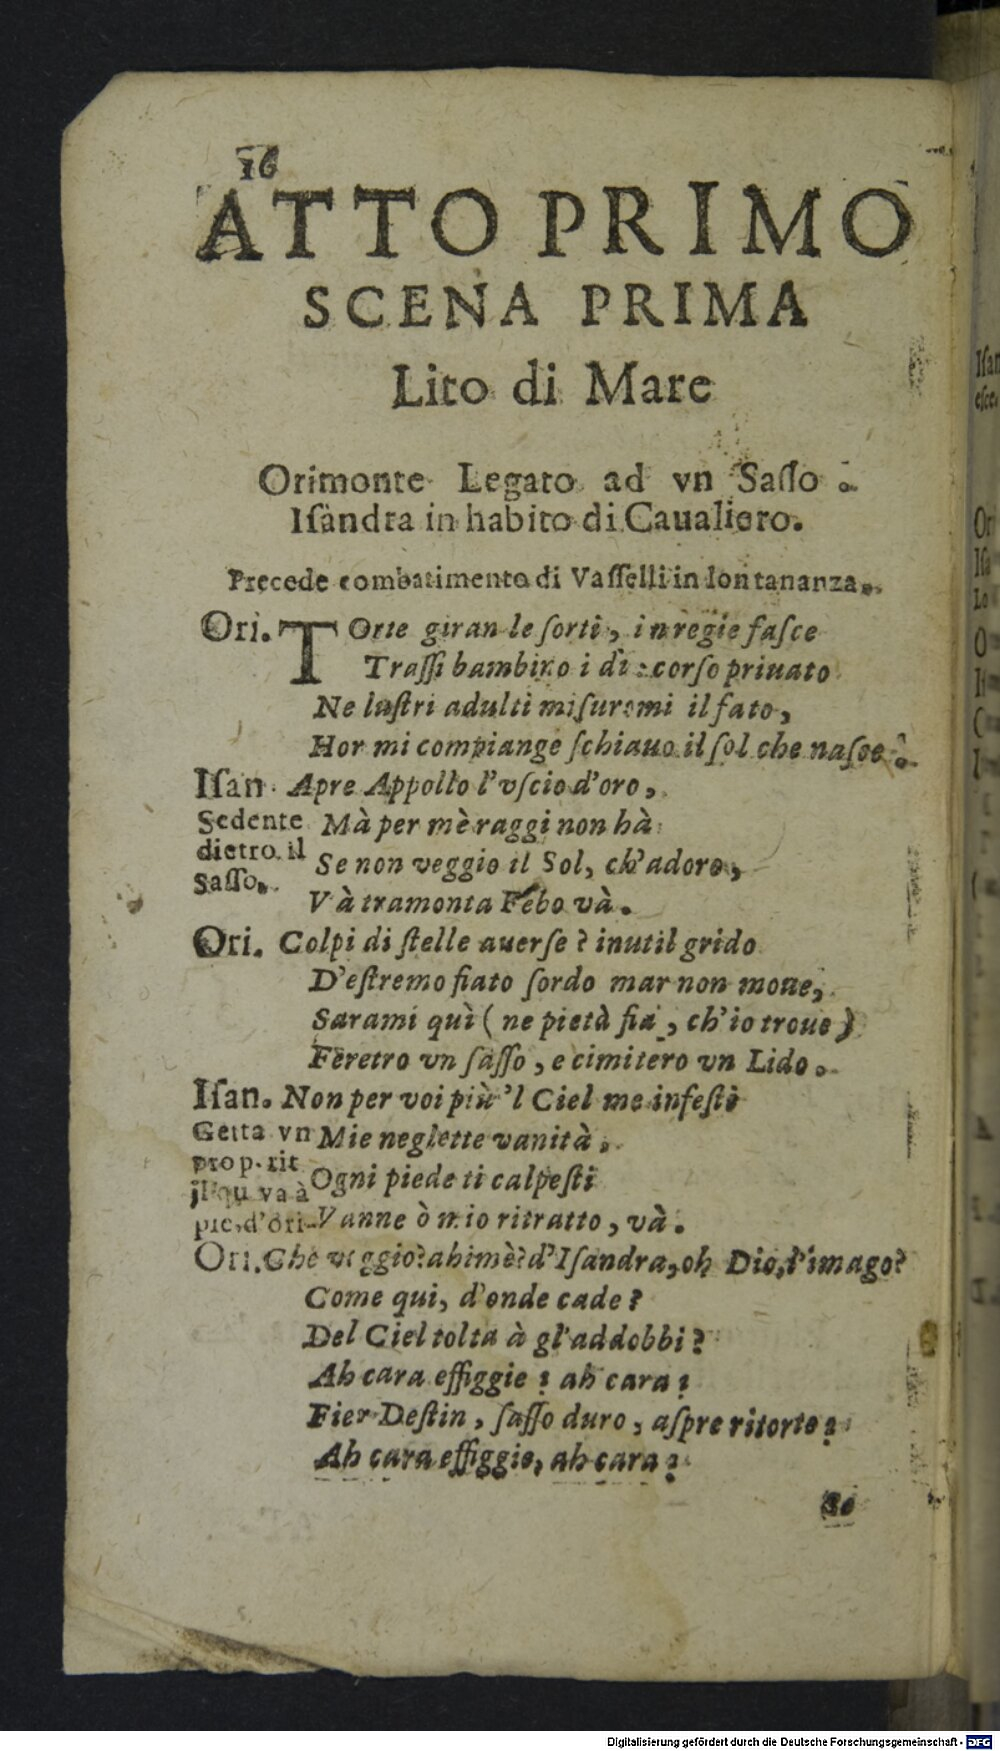 16
ATTO PRIMO
SCENA PRIMA
Lito di Mare
Orimonte Legato ad vn Saſſo.
Iſandra in habito di Caualiero.
Precede combatimento di Vaſſelli in lontananza.
Ori. TOrte giran le ſorti, in regie faſce
Traſſi bambino i di corſo priuato
Ne luſtri adulti miſuromi il fato,
Hor mi compiange ſchiauo il ſol che naſce.
Iſan. Apre Appollo l'vſcio d'oro,
Sedente Mà per mè raggi non hà
dietro il Se non veggio il Sol, ch'adoro,
Saſſo. Và tramonta Febo và.
Ori. Colpi di ſtelle auerſe? inutil grido
D'eſtremo fiato ſordo mar non moue,
Sarami quì (ne pietà fia, ch'io troue)
Feretro vn ſaſſo, e cimitero vn Lido.
Iſan. Non per voi più 'l Ciel me infeſti
Getta vn Mie neglette vanità.
prop. rit Ogni piede ti calpeſti
il qu va à Vanne ò mio ritratto, và.
pie d'ori-
Ori. Che veggio? ahimè? d'Iſandra, oh Dio, l'imago?
Come qui, d'onde cade?
Del Ciel tolta à gl'addobbi?
Ah cara effiggie? ah cara?
Fier Deſtin, ſaſſo duro, aſpre ritorte?
Ah cara effiggie, ah cara?
Iſan
eſce.
Ori
Iſa
Digitalisierung gefördert durch die Deutsche Forschungsgemeinschaft - DFG